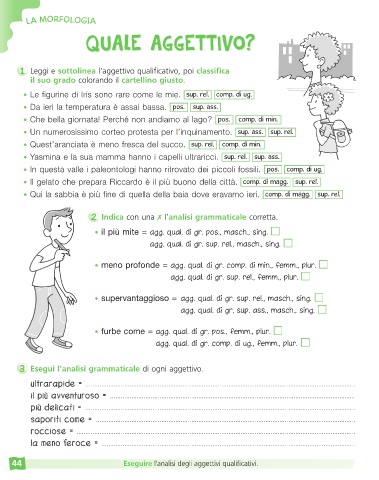 LA MORFOLOGIA
QUALE AGGETTIVO?
1 Leggi e sottolinea l'aggettivo qualificativo, poi classifica
il suo grado colorando il cartellino giusto.
• Le figurine di Iris sono rare come le mie. sup. rel. comp. di ug.
• Da ieri la temperatura è assai bassa. pos. sup. ass.
• Che bella giornata! Perché non andiamo al lago? pos. comp. di min.
• Un numerosissimo corteo protesta per l'inquinamento. sup. ass. sup. rel.
• Quest'aranciata è meno fresca del succo. sup. rel. comp. di min.
• Yasmina e la sua mamma hanno i capelli ultraricci. sup. rel. sup. ass.
• In questa valle i paleontologi hanno ritrovato dei piccoli fossili. pos. comp. di ug.
• Il gelato che prepara Riccardo è il più buono della città. comp. di magg. sup. rel.
• Qui la sabbia è più fine di quella della baia dove eravamo ieri. comp. di magg. sup. rel.
2 Indica con una X l'analisi grammaticale corretta.
• il più mite = agg. qual. di gr. pos., masch., sing.
agg. qual. di gr. sup. rel., masch., sing.
• meno profonde = agg. qual. di gr. comp. di min., femm., plur.
agg. qual. di gr. sup. rel., femm., plur.
• supervantaggioso = agg. qual. di gr. sup. rel., masch., sing.
agg. qual. di gr. sup. ass., masch., sing.
• furbe come = agg. qual. di gr. pos., femm., plur.
agg. qual. di gr. comp. di ug., femm., plur.
3 Esegui l'analisi grammaticale di ogni aggettivo.
ultrarapide =
il più avventuroso =
più delicati =
saporiti come =
rocciose =
la meno feroce =
44 Eseguire l'analisi degli aggettivi qualificativi.